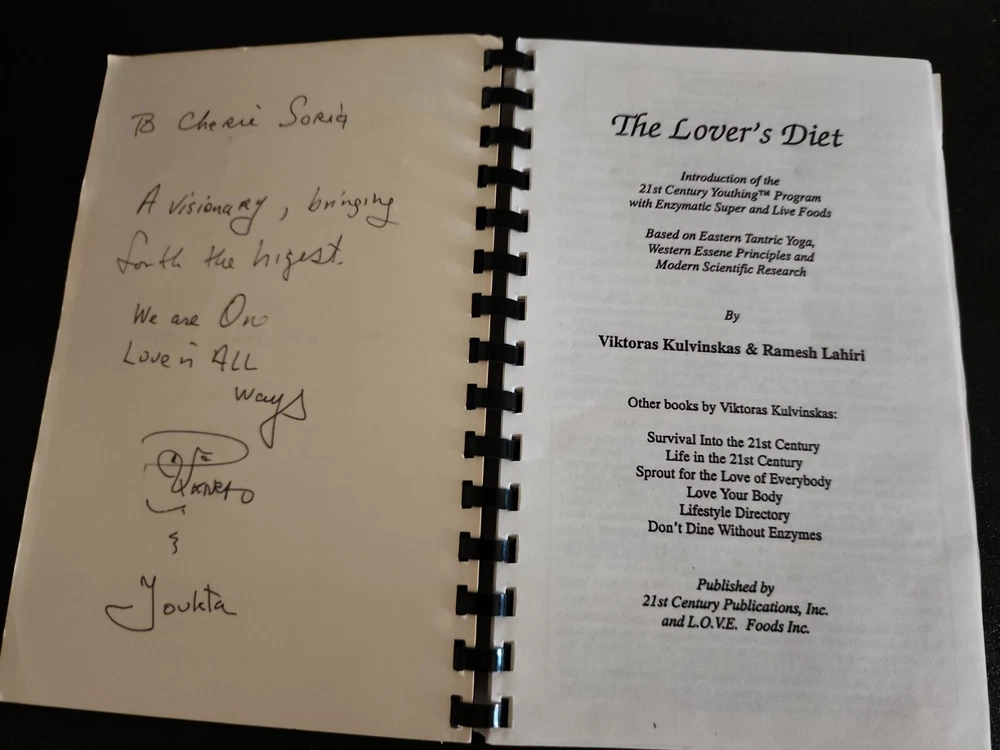 To Cherie Soria
A visionary, bringing
forth the higest.
We are One
Love is ALL
ways
&
Youkta
The Lover's Diet
Introduction of the
21st Century Youthing™ Program
with Enzymatic Super and Live Foods
Based on Eastern Tantric Yoga,
Western Essene Principles and
Modern Scientific Research
By
Viktoras Kulvinskas & Ramesh Lahiri
Other books by Viktoras Kulvinskas:
Survival Into the 21st Century
Life in the 21st Century
Sprout for the Love of Everybody
Love Your Body
Lifestyle Directory
Don't Dine Without Enzymes
Published by
21st Century Publications, Inc.
and L.O.V.E. Foods Inc.